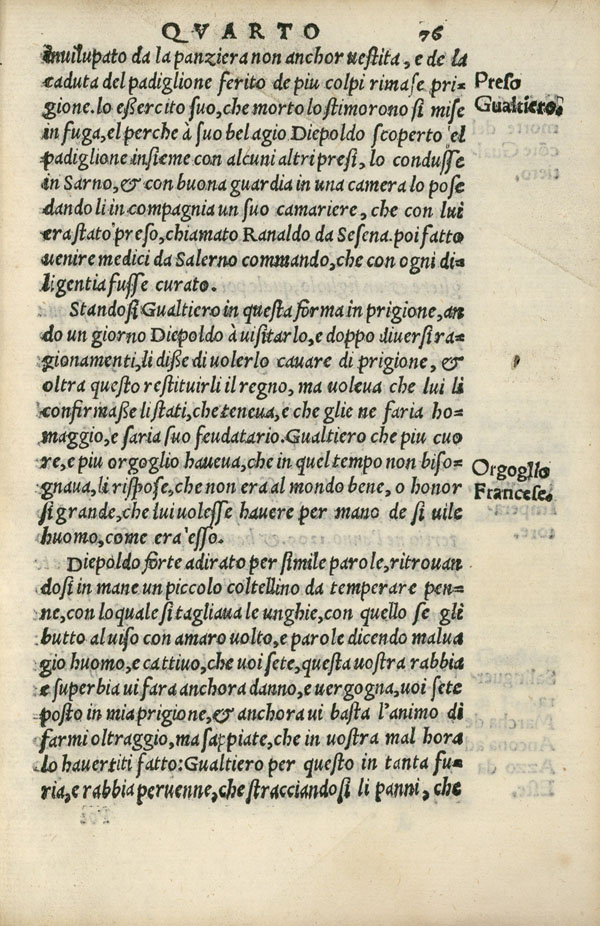 QVARTO 76
inuilupato da la panziera non anchor uestita, e de la
caduta del padiglione ferito de piu colpi rimase pri-
gione. lo eßercito suo, che morto lo stimorono si mise
in fuga, el perche à suo bel agio Diepoldo scoperto el
padiglione insieme con alcuni altri presi, lo condusse
in Sarno, & con buona guardia in una camera lo pose
dando li in compagnia un suo camariere, che con lui
era stato preso, chiamato Ranaldo da Sesena. poi fatto
uenire medici da Salerno commando, che con ogni di-
ligentia fusse curato.
Preso
Gualtiero.
Standosi Gualtiero in questa forma in prigione, an
do un giorno Diepoldo à uisitarlo, e doppo diuersi ra-
gionamenti, li diße di uolerlo cauare di prigione, &
oltra questo restituirli il regno, ma uoleua che lui li
confirmaße li stati, che teneua, e che glie ne faria ho-
maggio, e saria suo feudatario. Gualtiero che piu cuo
re, e piu orgoglio haueua, che in quel tempo non biso-
gnaua, li rispose, che non era al mondo bene, o honor
si grande, che lui uolesse hauere per mano de si uile
huomo, come era'esso.
Orgoglio
Francese.
Diepoldo forte adirato per simile parole, ritrouan
dosi in mane un piccolo coltellino da temperare pen-
ne, con lo quale si tagliaua le unghie, con quello se gli
butto al uiso con amaro uolto, e parole dicendo malua
gio huomo, e cattiuo, che uoi sete, questa uostra rabbia
e superbia ui fara anchora danno, e uergogna, uoi sete
posto in mia prigione, & anchora ui basta l'animo di
farmi oltraggio, ma sappiate, che in uostra mal hora
lo hauertiti fatto: Gualtiero per questo in tanta fu-
ria, e rabbia peruenne, che stracciandosi li panni, che